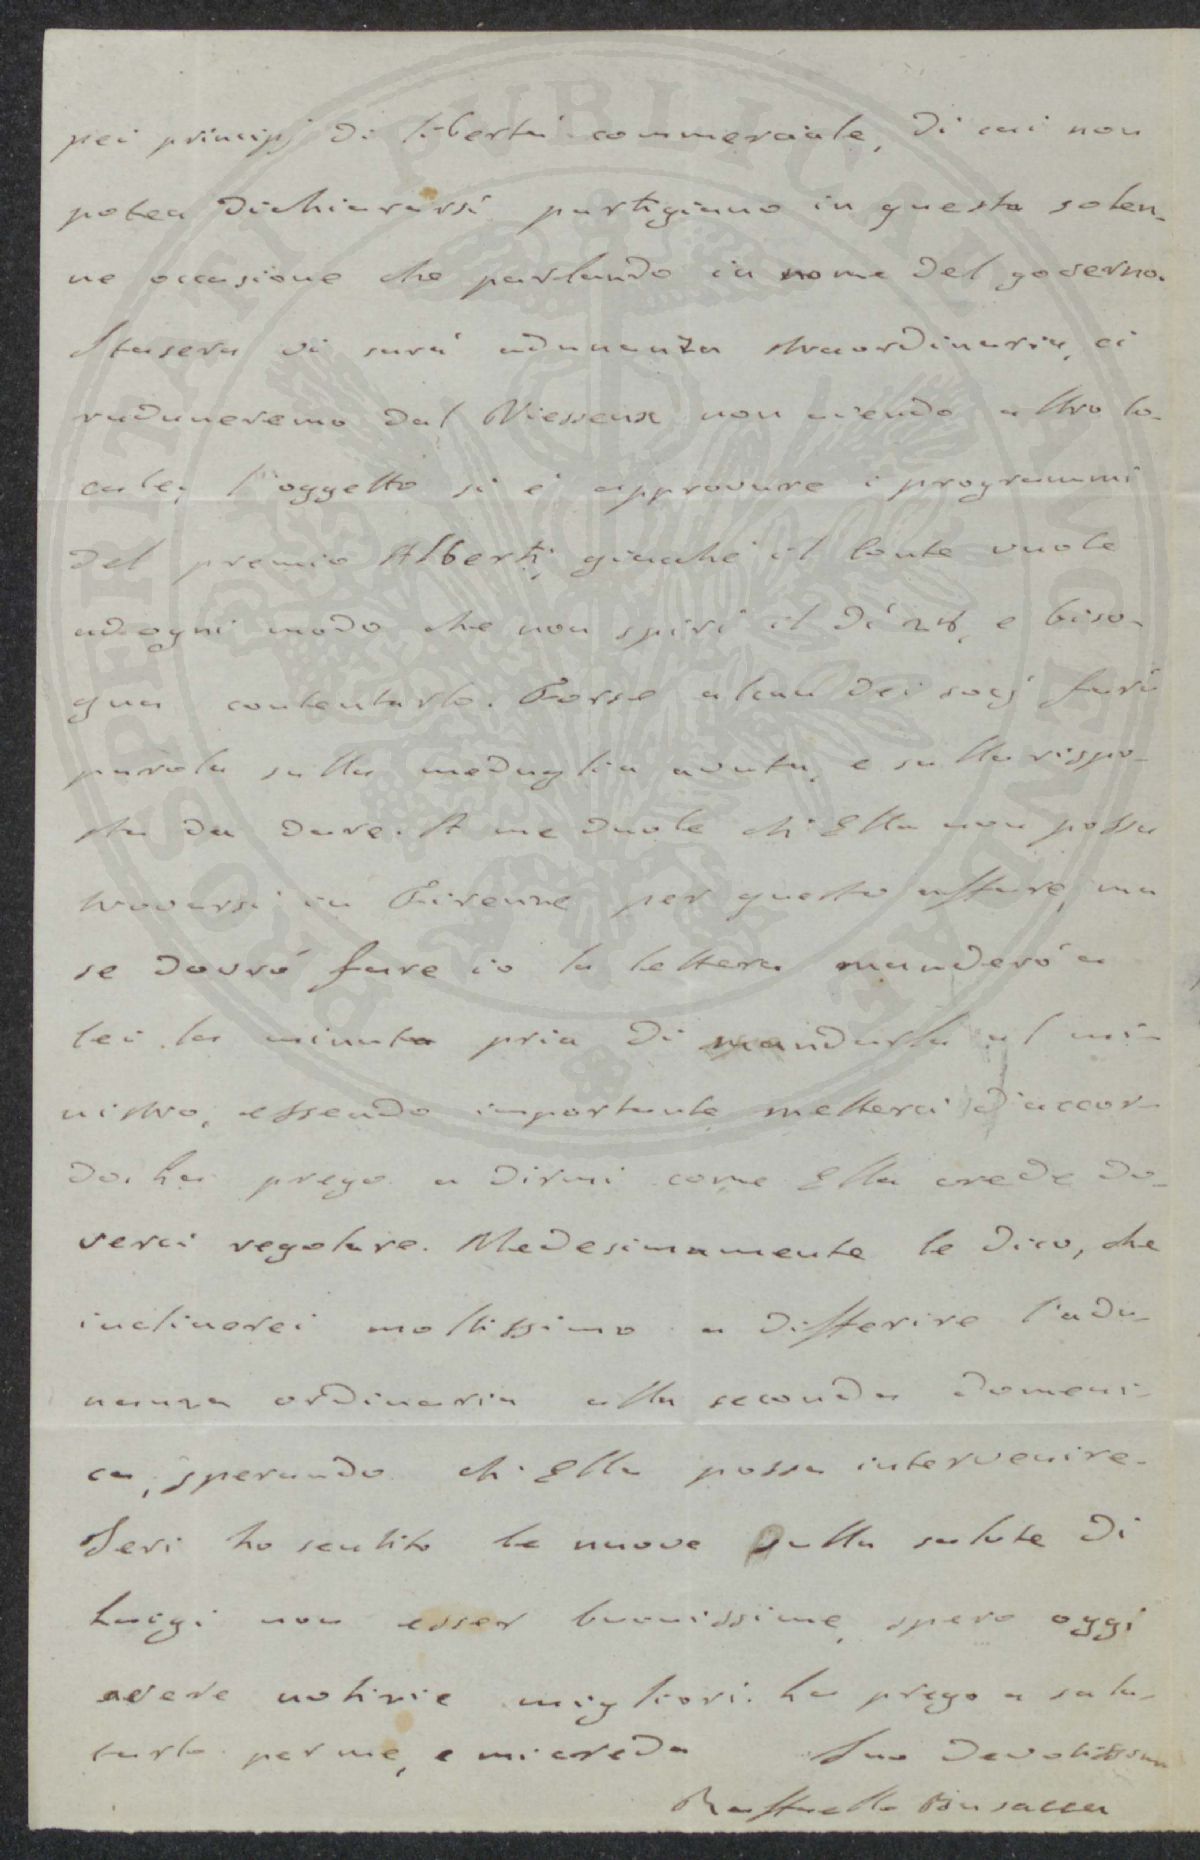 pei principj di libertà commerciale, di cui non
potea dichiararsi partigiano in questa solen-
ne occasione che parlando in nome del governo.
Stasera vi sarà adunanza straordinaria, ci
raduneremo dal Viesseux non avendo altro lo-
cale; l'oggetto si è approvare i programmi
del premio Alberti, giacché il Conte vuole
ad ogni modo che non spiri il dì 28, e biso-
gna contentarlo. Forse alcun dei socj farà
parola sulla medaglia avuta, e sulla rispo-
sta da dare. A me duole ch'Ella non possa
trovarsi in Firenze per questo affare, ma
se dovrò fare io la lettera manderò a
lei la minuta pria di mandarla al mi-
nistro, essendo importante metterci d'accor-
do. La prego a dirmi come Ella crede do-
verci regolare. Medesimamente le dico, che
inclinerei moltissimo a differire l'adu-
nanza ordinaria alla seconda domeni-
ca, sperando ch'Ella possa intervenire.
Ieri ho sentito le nuove sulla salute di
Luigi non esser buonissime, spero oggi
avere notizie migliori. La prego a salu-
tarlo per me, e mi creda Suo devotissimo
Raffaello Busacca
PROSPERITATI PUBLICAE AUGENDAE